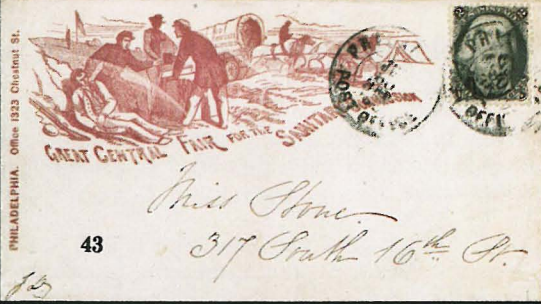 PHILADELPHIA. Office 1323 Chestnut St.
GREAT CENTRAL FAIR FOR THE SANITARY
POST OFFICE
Miss Stone
317 South 16th St.
43